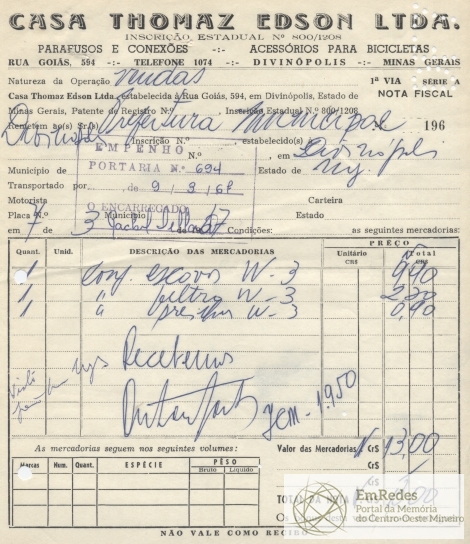 CASA THOMAZ EDSON LTDA.
INSCRIÇÃO ESTADUAL Nº 800/1208
PARAFUSOS E CONEXÕES -:- ACESSÓRIOS PARA BICICLETAS
RUA GOIÁS, 594 -:- TELEFONE 1074 -:- DIVINÓPOLIS -:- MINAS GERAIS
Natureza da Operação Vendas 1ª VIA SÉRIE A
NOTA FISCAL
Casa Thomaz Edson Ltda., estabelecida à Rua Goiás, 594, em Divinópolis, Estado de
Minas Gerais, Patente de Registro N.º Inscrição Estadual N.º 800/1208
Remetem ao(s) Sr.(s) Prefeitura Municipal 196
Inscrição N.º estabelecido(s)
EMPENHO
N.º , em Divinópolis
PORTARIA N.º 694
Município de Estado de
Transportado por
de 9/3/67
Motorista O ENCARREGADO Carteira
Placa N.º Município Estado
em 7 3 67 Condições: as seguintes mercadorias:
Quant. Unid. DESCRIÇÃO DAS MERCADORIAS PREÇO
Unitário CR$ Total CR$
1 escova W-3 9,90
1 " filtro W-3 2,20
1 " W-3 0,90
Recebemos
Jem-1950
As mercadorias seguem nos seguintes volumes:
Valor das Mercadorias Cr$ 13,00
Marcas Num. Quant. ESPÉCIE PÊSO
Bruto Líquido
Cr$
Cr$
TOTAL DA NOTA
NÃO VALE COMO RECIBO
EmRedes
Portal da Memória
do Centro-Oeste Mineiro